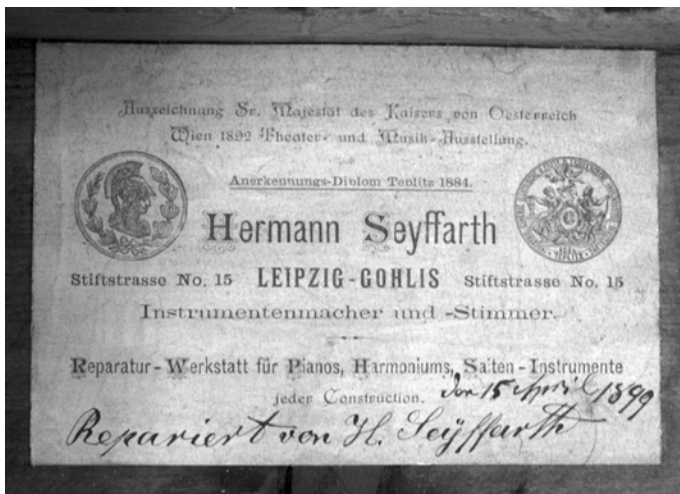 Auszeichnung Sr. Majestät des Kaisers von Oesterreich
Wien 1892 Theater- und Musik-Ausstellung.
Anerkennungs-Diplom Teplitz 1884.
Hermann Seyffarth
Stiftstrasse No. 15 LEIPZIG-GOHLIS Stiftstrasse No. 15
Instrumentenmacher und -Stimmer.
Reparatur-Werkstatt für Pianos, Harmoniums, Saiten-Instrumente
jeder Construction. den 15 April 1899
Repariert von H. Seyffarth